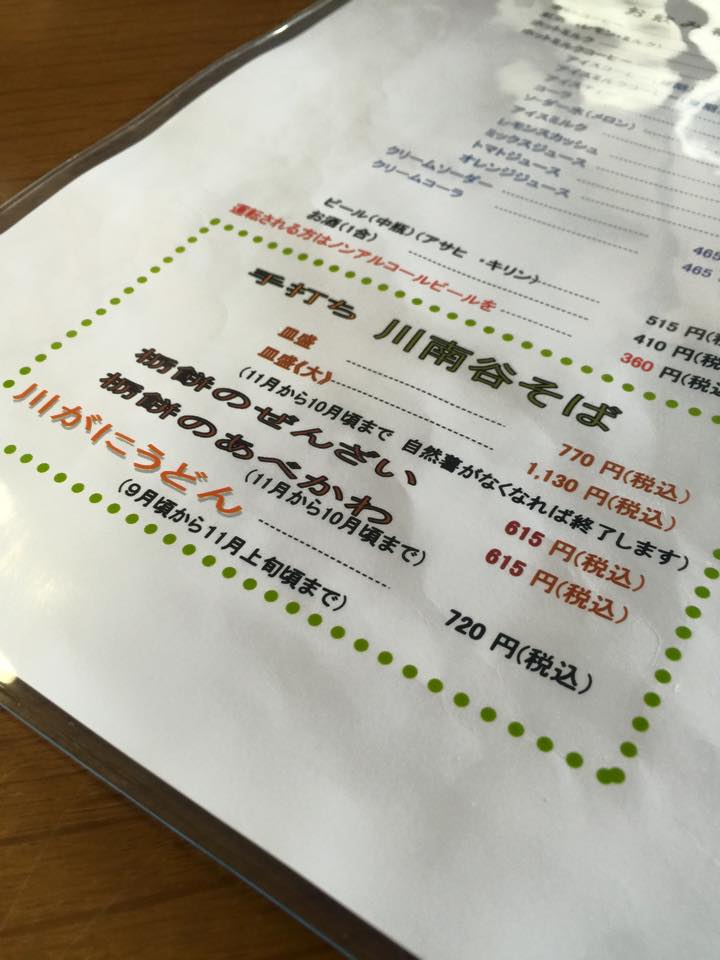 ホットミルク
アイスコーヒー
ソーダー水(メロン)
アイスミルク
レモンスカッシュ
ミックスジュース
トマトジュース
オレンジジュース
クリームソーダー 465
クリームコーラ 465
ビール(中瓶)(アサヒ・キリン) 515 円(税
お酒(1合) 410 円(税
運転される方はノンアルコールビールを 360 円(税
手打ち 川南谷そば
皿盛 770 円(税込)
皿盛《大》 1,130 円(税込)
(11月から10月頃まで 自然薯がなくなれば終了します)
栃餅のぜんざい 615 円(税込)
栃餅のあべかわ 615 円(税込)
(11月から10月頃まで)
川がにうどん 720 円(税込)
(9月頃から11月上旬頃まで)